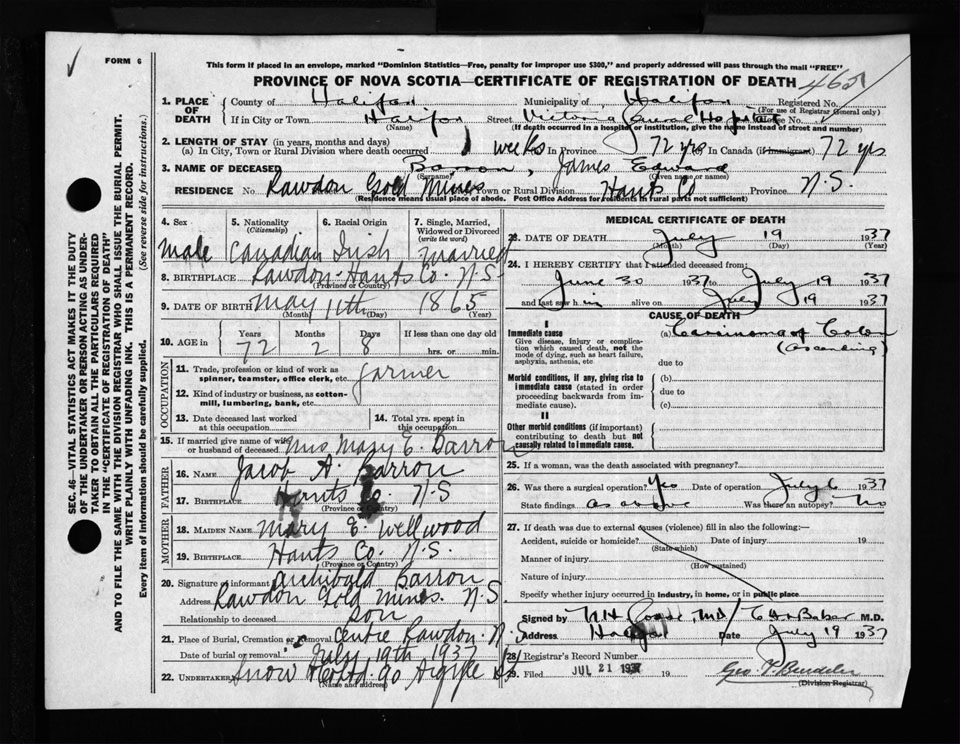 FORM 6
This form if placed in an envelope, marked "Dominion Statistics—Free, penalty for improper use $300," and properly addressed will pass through the mail "FREE"
PROVINCE OF NOVA SCOTIA—CERTIFICATE OF REGISTRATION OF DEATH
1. PLACE OF DEATH
County of Halifax Municipality of Halifax Registered No.
(For use of Registrar General only)
If in City or Town Halifax Street Victoria General Hospital House No.
(Name) (If death occurred in a hospital or institution, give the name instead of street and number)
2. LENGTH OF STAY (in years, months and days)
(a) In City, Town or Rural Division where death occurred weeks In Province 72 yrs In Canada (if Immigrant) 72 yrs
3. NAME OF DECEASED Barron, James Edward
(Surname) (Given name or names)
RESIDENCE No. Rawdon Gold Mines Town or Rural Division Hants Co Province N.S.
(Residence means usual place of abode. Post Office Address for residents in rural parts not sufficient)
4. Sex
male
5. Nationality
(Citizenship)
Canadian
6. Racial Origin
Irish
7. Single, Married, Widowed or Divorced
(write the word)
Married
8. BIRTHPLACE Rawdon Hants Co. N.S
(Province or Country)
9. DATE OF BIRTH May 11th 1865
(Month) (Day) (Year)
10. AGE in
Years Months Days If less than one day old
72 2 8 hrs. or min.
OCCUPATION
11. Trade, profession or kind of work as spinner, teamster, office clerk, etc. farmer
12. Kind of industry or business, as cotton-mill, lumbering, bank, etc.
13. Date deceased last worked at this occupation
14. Total yrs. spent in this occupation
15. If married give name of wife or husband of deceased Mrs Mary E. Barron
FATHER
16. NAME Jacob A. Barron
17. BIRTHPLACE Hants Co. N.S
(Province or Country)
MOTHER
18. MAIDEN NAME Mary E. Wellwood
19. BIRTHPLACE Hants Co. N.S.
(Province or Country)
20. Signature of informant Archibald Barron
Address Rawdon Gold Mines. N.S
Relationship to deceased son
21. Place of Burial, Cremation or removal Centre Rawdon. N.S
Date of burial or removal July 19th 1937
22. UNDERTAKER Snow & Co Ltd. 90 Argyle St
(Name and address)
MEDICAL CERTIFICATE OF DEATH
23. DATE OF DEATH July 19 1937
(Month) (Day) (Year)
24. I HEREBY CERTIFY that I attended deceased from:
June 30 1937 to July 19 1937
and last saw him alive on July 19 1937
CAUSE OF DEATH
I
Immediate cause
Give disease, injury or complication which caused death, not the mode of dying, such as heart failure, asphyxia, asthenia, etc
(a) Carcinoma of Colon
(ascending)
due to
Morbid conditions, if any, giving rise to immediate cause (stated in order proceeding backwards from immediate cause)
(b)
due to
(c)
II
Other morbid conditions (if important) contributing to death but not causally related to immediate cause.
25. If a woman, was the death associated with pregnancy?
26. Was there a surgical operation? Yes Date of operation July 6 1937
State findings as above Was there an autopsy? No
27. If death was due to external causes (violence) fill in also the following:—
Accident, suicide or homicide? Date of injury 19
(State which)
Manner of injury
(How sustained)
Nature of injury
Specify whether injury occurred in industry, in home, or in public place
Signed by M.D.
Address Halifax Date July 19 1937
28. Registrar's Record Number
29. Filed JUL 21 1937 19
(Division Registrar)
SEC. 46—VITAL STATISTICS ACT MAKES IT THE DUTY
OF THE UNDERTAKER OR PERSON ACTING AS UNDER-
TAKER TO OBTAIN ALL THE PARTICULARS REQUIRED
IN THE "CERTIFICATE OF REGISTRATION OF DEATH"
AND TO FILE THE SAME WITH THE DIVISION REGISTRAR WHO SHALL ISSUE THE BURIAL PERMIT.
WRITE PLAINLY WITH UNFADING INK. THIS IS A PERMANENT RECORD.
Every item of information should be carefully supplied. (See reverse side for instructions.)